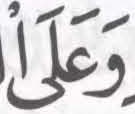 وَعَلَى ا